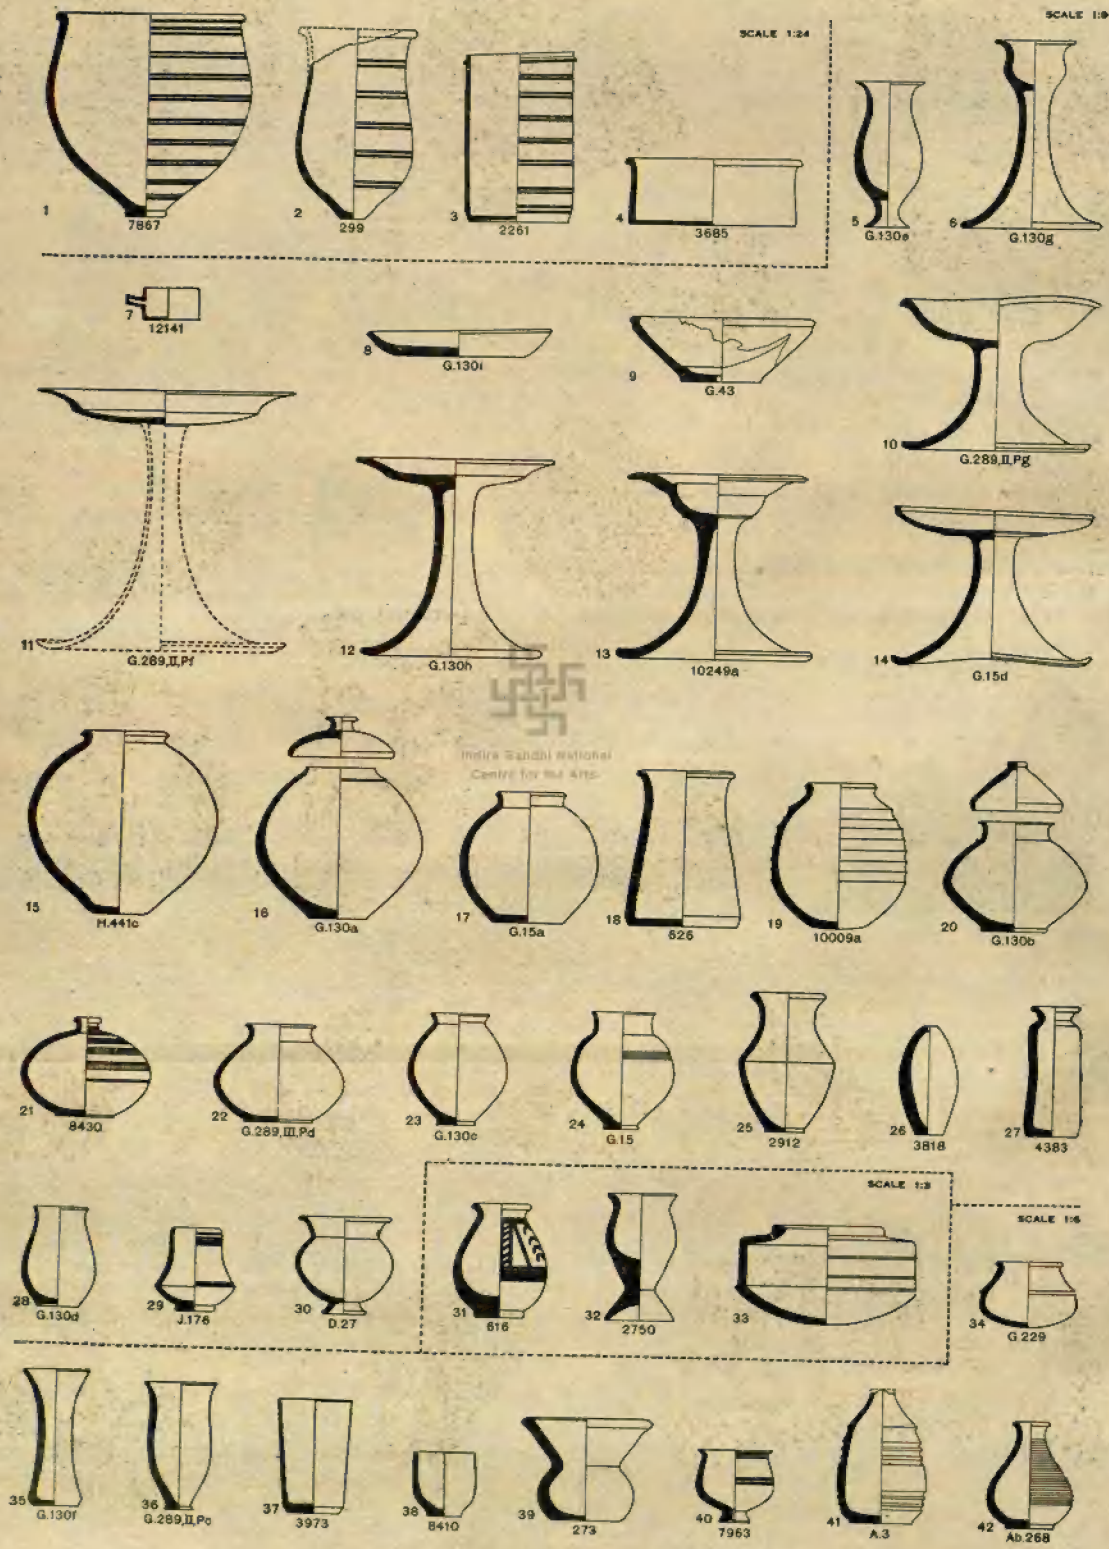 SCALE 1:24
SCALE 1:9
1
7867
2
299
3
2261
4
3685
5
G.130e
6
G.130g
7
12141
8
G.130i
9
G.43
10
G.289,II,Pg
11
G.289,II,Pf
12
G.130h
13
10249a
14
G.15d
Indira Gandhi National
Centre for the Arts
15
H.441c
16
G.130a
17
G.15a
18
626
19
10009a
20
G.130b
21
8430
22
G.289,III,Pd
23
G.130c
24
G.15
25
2912
26
3818
27
4383
SCALE 1:3
SCALE 1:6
28
G.130d
29
J.176
30
D.27
31
616
32
2750
33
34
G 229
35
G.130f
36
G.289,II,Pc
37
3973
38
8410
39
273
40
7963
41
A.3
42
Ab.268